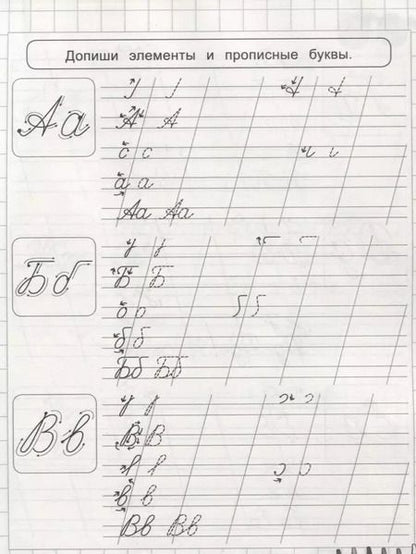 Допиши элементы и прописные буквы.
Аа
А А
с с
а а
Аа Аа
Бб
Б Б
б б
Бб Бб
Вв
В В
в в
Вв Вв